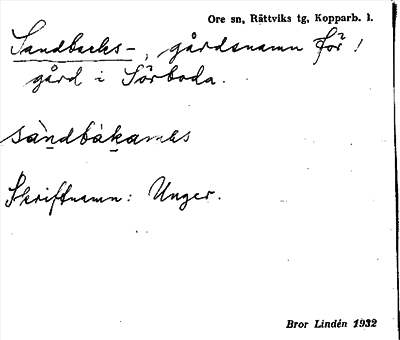 Ore sn, Rättviks tg, Kopparb. l.
Sandbacks-, gårdsnamn för
gård i Sörboda.
sàndbàkamȧs
Skriftnamn: Unger.
Bror Lindén 1932